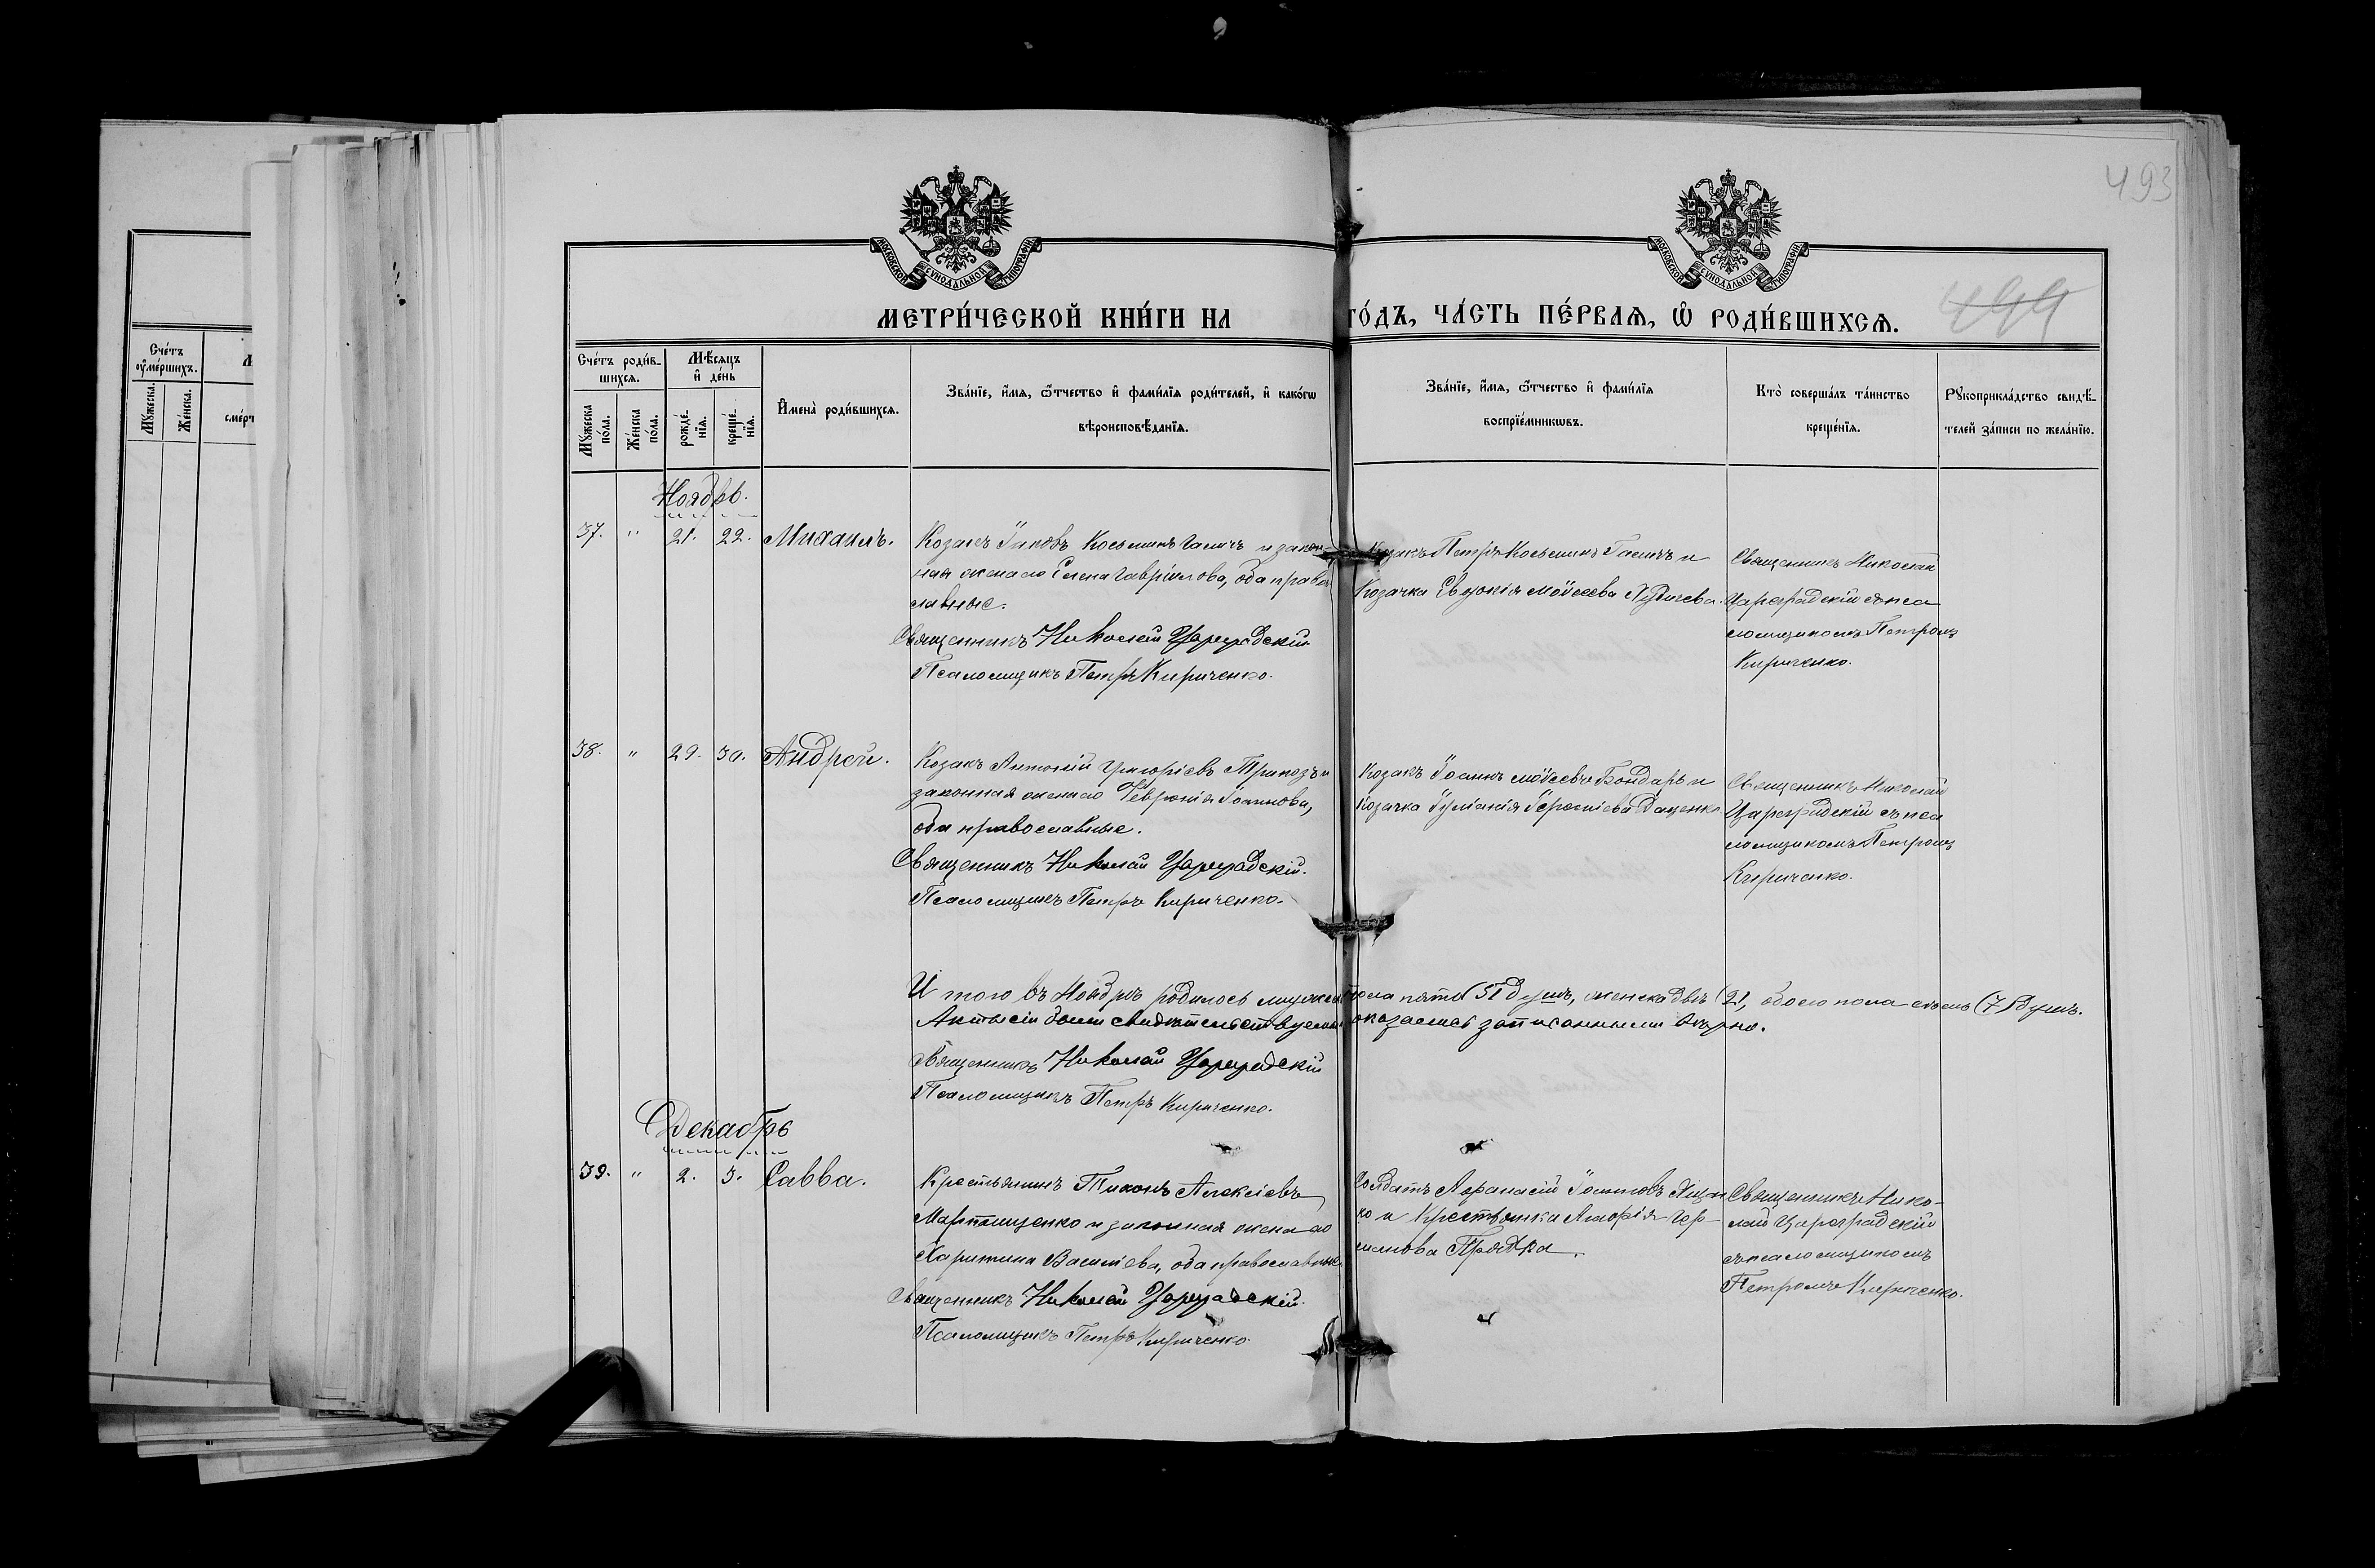 493
499
МОСКОВСКОЙ СѴНОДАЛЬНОЙ ТИПОГРАФІИ
МОСКОВСКОЙ СѴНОДАЛЬНОЙ ТИПОГРАФІИ
МЕТРИ́ЧЕСКОЙ КНИ́ГИ НА ГО́ДЪ, ЧА́СТЬ ПЕ́РВАѦ, Ѿ РОДИ́ВШИХСѦ.
Сче́тъ ѹ҆ме́ршихъ.
Мꙋ́жеска.
Же́нска.
Сче́тъ роди́в-
шихсѧ.
Мꙋ́жеска по́ла.
Же́нска по́ла.
Мѣ́сѧцъ
и҆ де́нь
рожде́-
нїѧ.
креще́-
нїѧ.
И҆мена̀ роди́вшихсѧ.
Зва́нїе, и҆́мѧ, ѻ҆́тчество и҆ фами́лїѧ роди́телей, и҆ како́гѡ
вѣроисповѣ́данїѧ.
Зва́нїе, и҆́мѧ, ѻ҆́тчество и҆ фами́лїѧ
воспрїе́мникѡвъ.
Кто̀ соверша́лъ та́инство
креще́нїѧ.
Рꙋкоприкла́дство свидѣ́-
телей за́писи по жела́нїю.
Ноябрь.
37. " 21. 22. Михаилъ.
Козакъ Іаковъ Косьминъ Галичъ и закон-
ная жена его Елена Гавріилова, оба право
славные.
Священникъ Николай Цареградскій.
Псаломщикъ Петръ Кириченко.
Козакъ Петръ Косьминъ Галичъ и
Козачка Евдокія Моѵсеева
Священникъ Николай
Цареградскій съ пса
ломщикомъ Петромъ
Кириченко.
38. " 29. 30. Андрей.
Козакъ Антоній Григоріевъ Трипозъ и
законная жена его Феѵронія Іоаннова,
оба православные.
Священникъ Николай Цареградскій.
Псаломщикъ Петръ Кириченко.
Козакъ Іоаннъ Моѵсеевъ Бондарь и
Козачка Іуліанія Даценко
Священникъ Николай
Цареградскій съ пса
ломщикомъ Петромъ
Кириченко.
И того въ Ноябрѣ родилось мужеска пола пять (5) душъ, женска двѣ (2), обоего пола семь (7) душъ.
Акты сіи были свидѣтельствуемы оказались записанными вѣрно.
Священникъ Николай Цареградскій
Псаломщикъ Петръ Кириченко.
Декабрь
39. " 2. 3. Савва.
Крестьянинъ Тихонъ Алексіевъ
Мартыщенко и законная жена его
Харитина Василіева, оба православные.
Священникъ Николай Цареградскій.
Псаломщикъ Петръ Кириченко.
Солдатъ Аѳанасій Іоанновъ Яцен
ко и Крестьянка Агаѳія Гер-
манова Прядка.
Священникъ Нико-
лай Цареградскій
съ псаломщикомъ
Петромъ Кириченко.